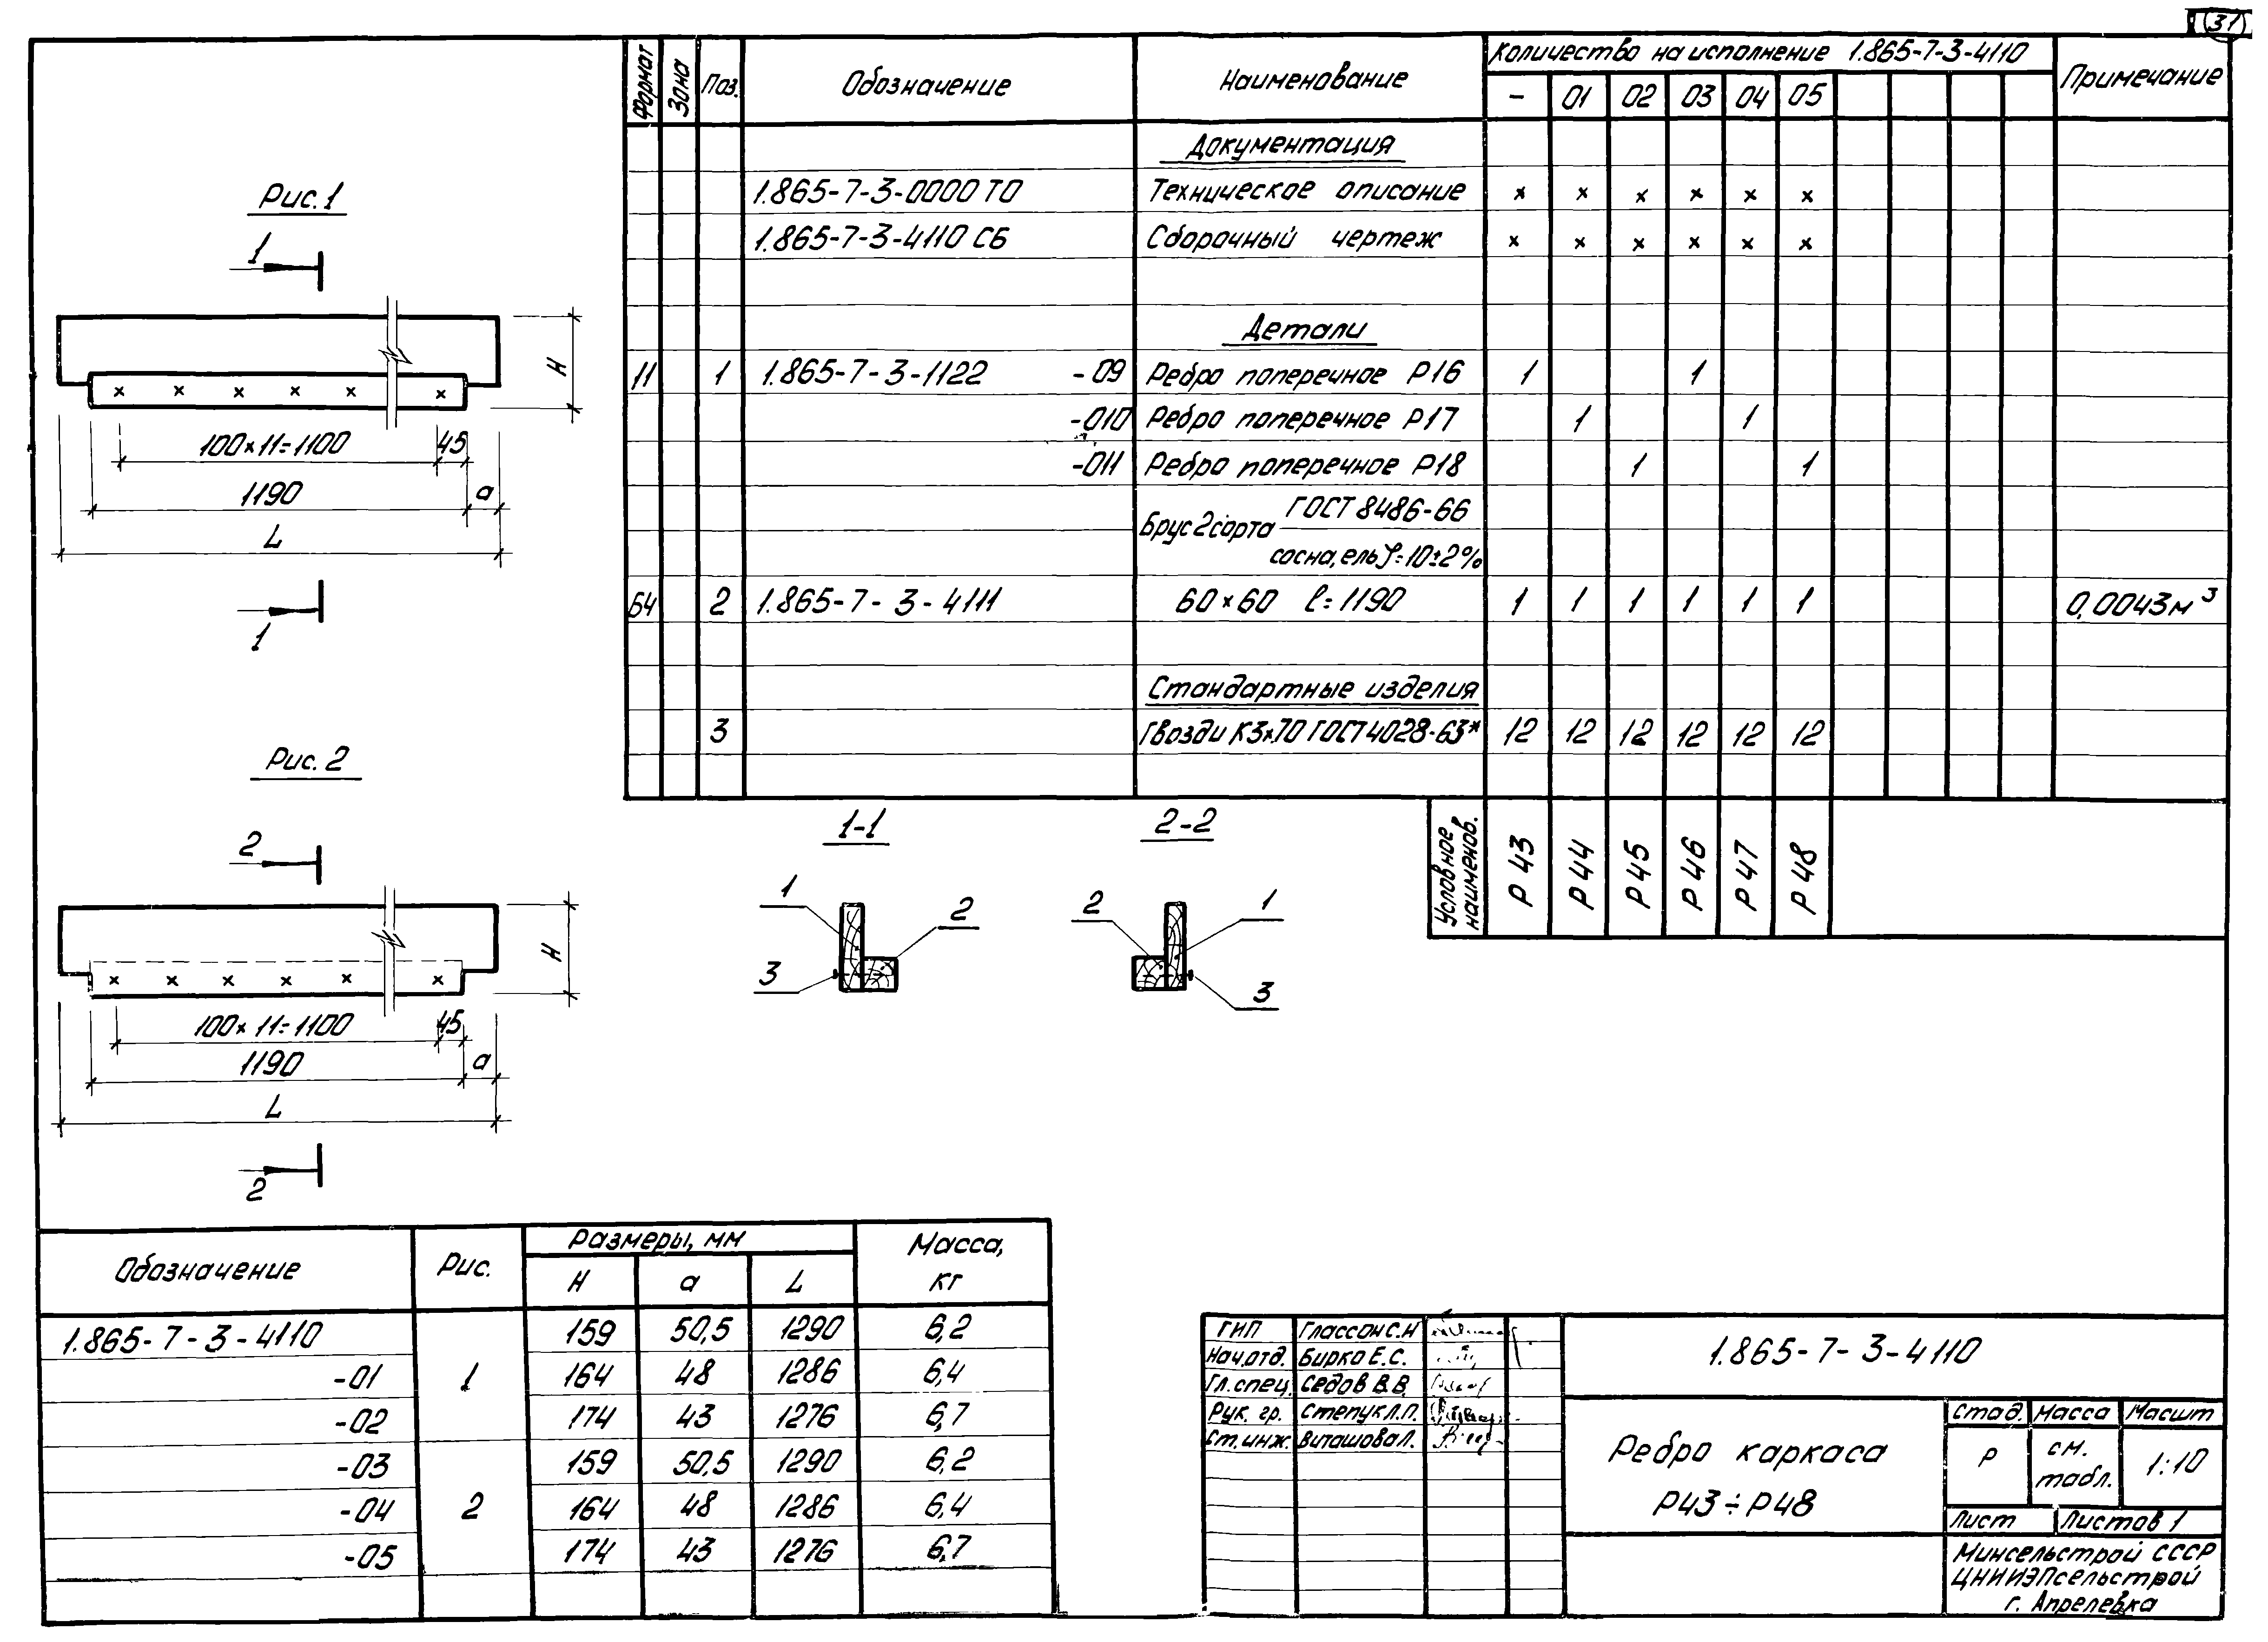 31
Формат Зона Поз. Обозначение Наименование Количество на исполнение 1.865-7-3-4110 Примечание
- 01 02 03 04 05
Документация
1.865-7-3-0000 ТО Техническое описание x x x x x x
1.865-7-3-4110 СБ Сборочный чертеж x x x x x x
Детали
11 1 1.865-7-3-1122 -09 Ребро поперечное Р16 1 1
-010 Ребро поперечное Р17 1 1
-011 Ребро поперечное Р18 1 1
Брус 2 сорта ГОСТ 8486-66
сосна, ель φ=10±2%
Б4 2 1.865-7-3-4111 60×60 ℓ=1190 1 1 1 1 1 1 0,0043м³
Стандартные изделия
3 Гвозди К3×70 ГОСТ 4028-63* 12 12 12 12 12 12
Условное наименов. Р43 Р44 Р45 Р46 Р47 Р48
Рис.1
1
H
100×11=1100 45
1190 a
L
1
Рис. 2
2
H
100×11=1100 45
1190 a
L
2
1-1
1
2
3
2-2
2
1
3
Обозначение Рис. Размеры, мм Масса, кг
H a L
1.865-7-3-4110 1 159 50,5 1290 6,2
-01 164 48 1286 6,4
-02 174 43 1276 6,7
-03 2 159 50,5 1290 6,2
-04 164 48 1286 6,4
-05 174 43 1276 6,7
ГИП Глассон С.Н
Нач.отд. Бирко Е.С.
Гл.спец. Седов В.В.
Рук. гр. Степук Л.П.
Ст.инж. Виташова Л.
1.865-7-3-4110
Ребро каркаса
Р43÷Р48
Стад. Масса Масшт
Р см. табл. 1:10
Лист Листов 1
Минсельстрой СССР
ЦНИИЭПсельстрой
г. Апрелевка